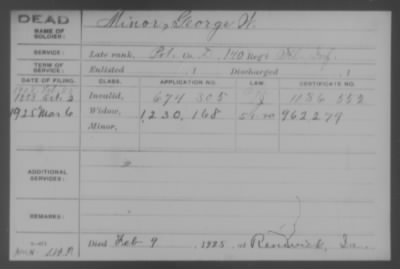 DEAD
NAME OF SOLDIER: Minor, George W.
SERVICE: Late rank, Pvt. Co. 140 Reg't Inf.
TERM OF SERVICE: Enlisted , 1 Discharged , 1
DATE OF FILING. CLASS. APPLICATION NO. LAW. CERTIFICATE NO.
Invalid, 674 305
1925 Mar 6 Widow, 1230,168 962279
Minor,
ADDITIONAL SERVICES:
REMARKS:
Died Feb 9, 1925, at Renwick, Ia.